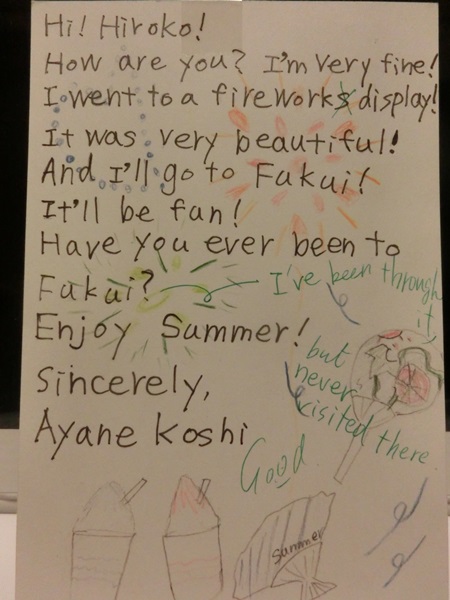 Hi! Hiroko!
How are you? I'm very fine!
I went to a fireworks display!
It was very beautiful!
And I'll go to Fukui!
It'll be fun!
Have you ever been to
Fukui?
I've been through
it,
but
never
visited there
Enjoy Summer!
Sincerely,
Ayane Koshi
Good
summer